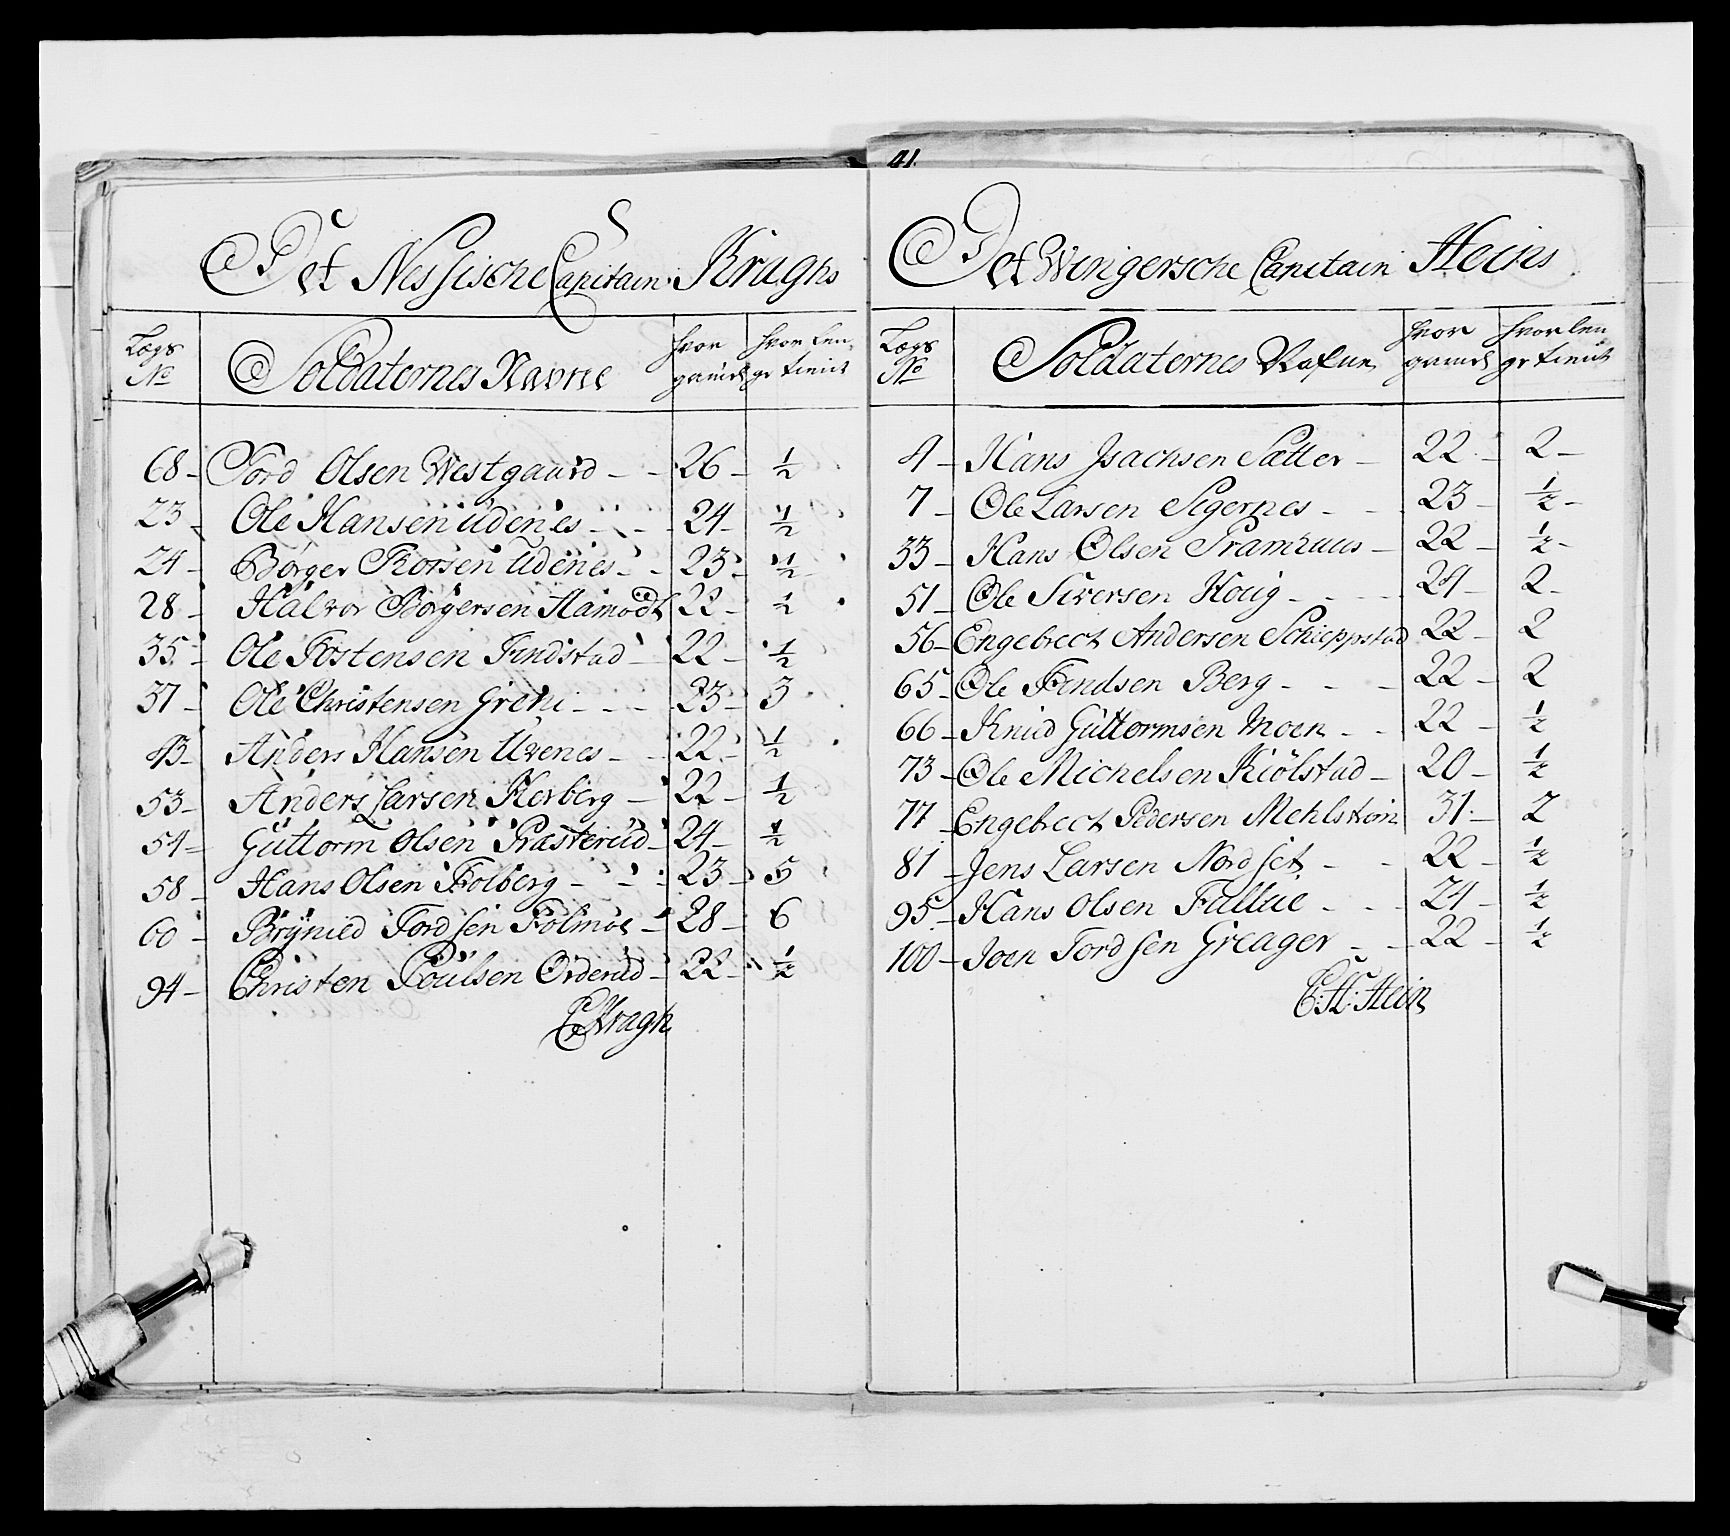 Det Nessische Capitain Kraghs
Lægs No
Soldaternes Navne
hvor gamel
hvor lengr tient
68 - Tord Olsen Westgaard - - 26 - 1/2
23 - Ole Hansen Udenes - - - 24 - 1/2
24 - Børger Torsen Udenes - - 23 - 1/2
28 - Halvor Børgersen Hamodt 22 - 1/2
35 - Ole Tostensen Findstad - 22 - 1/2
37 - Ole Christensen Greni - - - 23 - 3
43 - Anders Hansen Uvenes - - 22 - 1/2
53 - Anders Larsen Herberg - 22 - 1/2
54 - Guttorm Olsen Prasterud - 24 - 1/2
58 - Hans Olsen Folberg - - - 23 - 5
60 - Brynied Tordsen Folmoe - 28 - 6
94 - Christen Poulsen Orderud - 22 - 1/2
Kragh
41.
Det Wingersche Capitain Heins
Lægs No
Soldaternes Nafne
hvor gamel
hvor lengr tient
4 - Hans Jsachsen Sætter - 22 - 2 -
7 - Ole Larsen Sigernes - - - 23 - 1/2 -
33 - Hans Olsen Tramhuus - 22 - 1/2 -
51 - Ole Siversen Houg - - - - 24 - 2 -
56 - Engebrect Andersen Schieppstad 22 - 2
65 - Ole Findsen Berg - - - 22 - 2
66 - Knud Guttormsen Moen - - 22 - 1/2
73 - Ole Michelsen Kiölstad - 20 - 1/2
77 - Engebrect Pedersen Mehlstøm 31 - 2
81 - Jens Larsen Nordset - - 22 - 1/2
95 - Hans Olsen Fallue - - - 24 - 1/2
100 - Joen Tordsen Greager - - 22 - 1/2
C: H: Hein